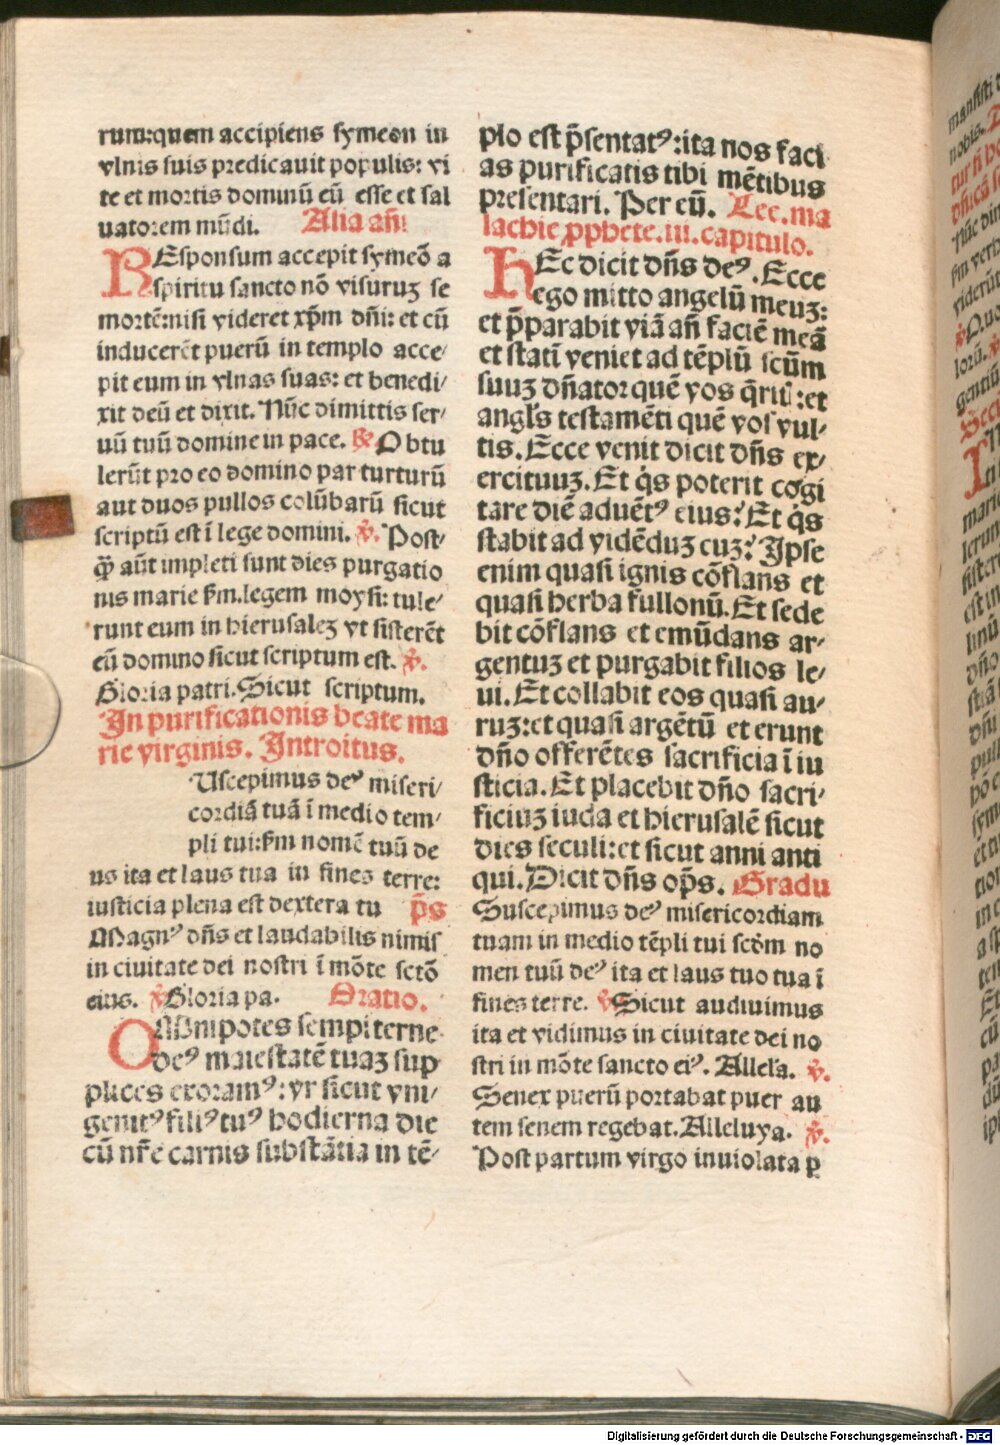 rum:quem accipiens symeon in
vlnis suis predicauit populis: vi
te et mortis dominū eū esse et sal
uatorem mūdi. Alia añ
REsponsum accepit symeō a
spiritu sancto nō visuruꝫ se
mortē:nisi videret xp̄m dñi: et cū
inducerēt puerū in templo acce⸗
pit eum in vlnas suas: et benedi⸗
xit deū et dixit. Nūc dimittis ser⸗
uū tuū domine in pace. ℟ Obtu
lerūt pro eo domino par turturū
aut duos pullos colūbarū sicut
scriptū est ī lege domini. ℣. Post⸗
q̄ꝫ aūt impleti sunt dies purgatio
nis marie s̄m.legem moysi: tule⸗
runt eum in hierusaleꝫ vt sisterēt
eū domino sicut scriptum est. ℣.
Gloria patri. Sicut scriptum.
In purificationis beate ma
rie virginis. Introitus.
Uscepimus deꝰ miseri⸗
cordiā tuā ī medio tem⸗
pli tui:s̄m nomē tuū de
us ita et laus tua in fines terre:
iusticia plena est dextera tu p̄s
Magnꝰ dñs et laudabilis nimis
in ciuitate dei nostri ī mōte sctō
eius. ℣ Gloria pa. Oratio.
OMnipotēs sempiterne
deꝰ maiestatē tuaꝫ sup
plices exoramꝰ: vt sicut vni⸗
genitꝰ filiꝰ tuꝰ hodierna die
cū nr̄e carnis substātia in tē⸗
plo est p̄sentatꝰ:ita nos faci
as purificatis tibi mētibus
presentari. Per eū. Lec. ma
lachie ꝓphete.iii.capitulo.
HEc dicit dñs deꝰ. Ecce
ego mitto angelū meuꝫ:
et p̄parabit viā añ faciē meā
et statī veniet ad tēplū scūm
suuꝫ dñator quē vos q̄ritis:et
angl's testamēti quē vos vul⸗
tis. Ecce venit dicit dñs ex⸗
ercituuꝫ. Et q̇s poterit cogi
tare diē aduētꝰ eius? Et q̇s
stabit ad vidēduꝫ cuꝫ? Ipse
enim quasi ignis cōflans et
quasi herba fullonū. Et sede
bit cōflans et emūdans ar⸗
gentuꝫ et purgabit filios le⸗
ui. Et collabit eos quasi au⸗
ruꝫ:et quasi argētū et erunt
dño offerētes sacrificia ī iu
sticia. Et placebit dño sacri⸗
ficiuꝫ iuda et hierusalē sicut
dies seculi:et sicut anni anti
qui. Dicit dñs op̄s. Gradu
Suscepimus deꝰ misericordiam
tuam in medio tēpli tui sctm no
men tuū deꝰ ita et laus tuo tua ī
fines terre. ℣ Sicut audiuimus
ita et vidimus in ciuitate dei no
stri in mōte sancto eiꝰ. Allel'a. ℣.
Senex puerū portabat puer au
tem senem regebat. Alleluya. ℣.
Post partum virgo inuiolata ꝑ
Digitalisierung gefördert durch die Deutsche Forschungsgemeinschaft - DFG